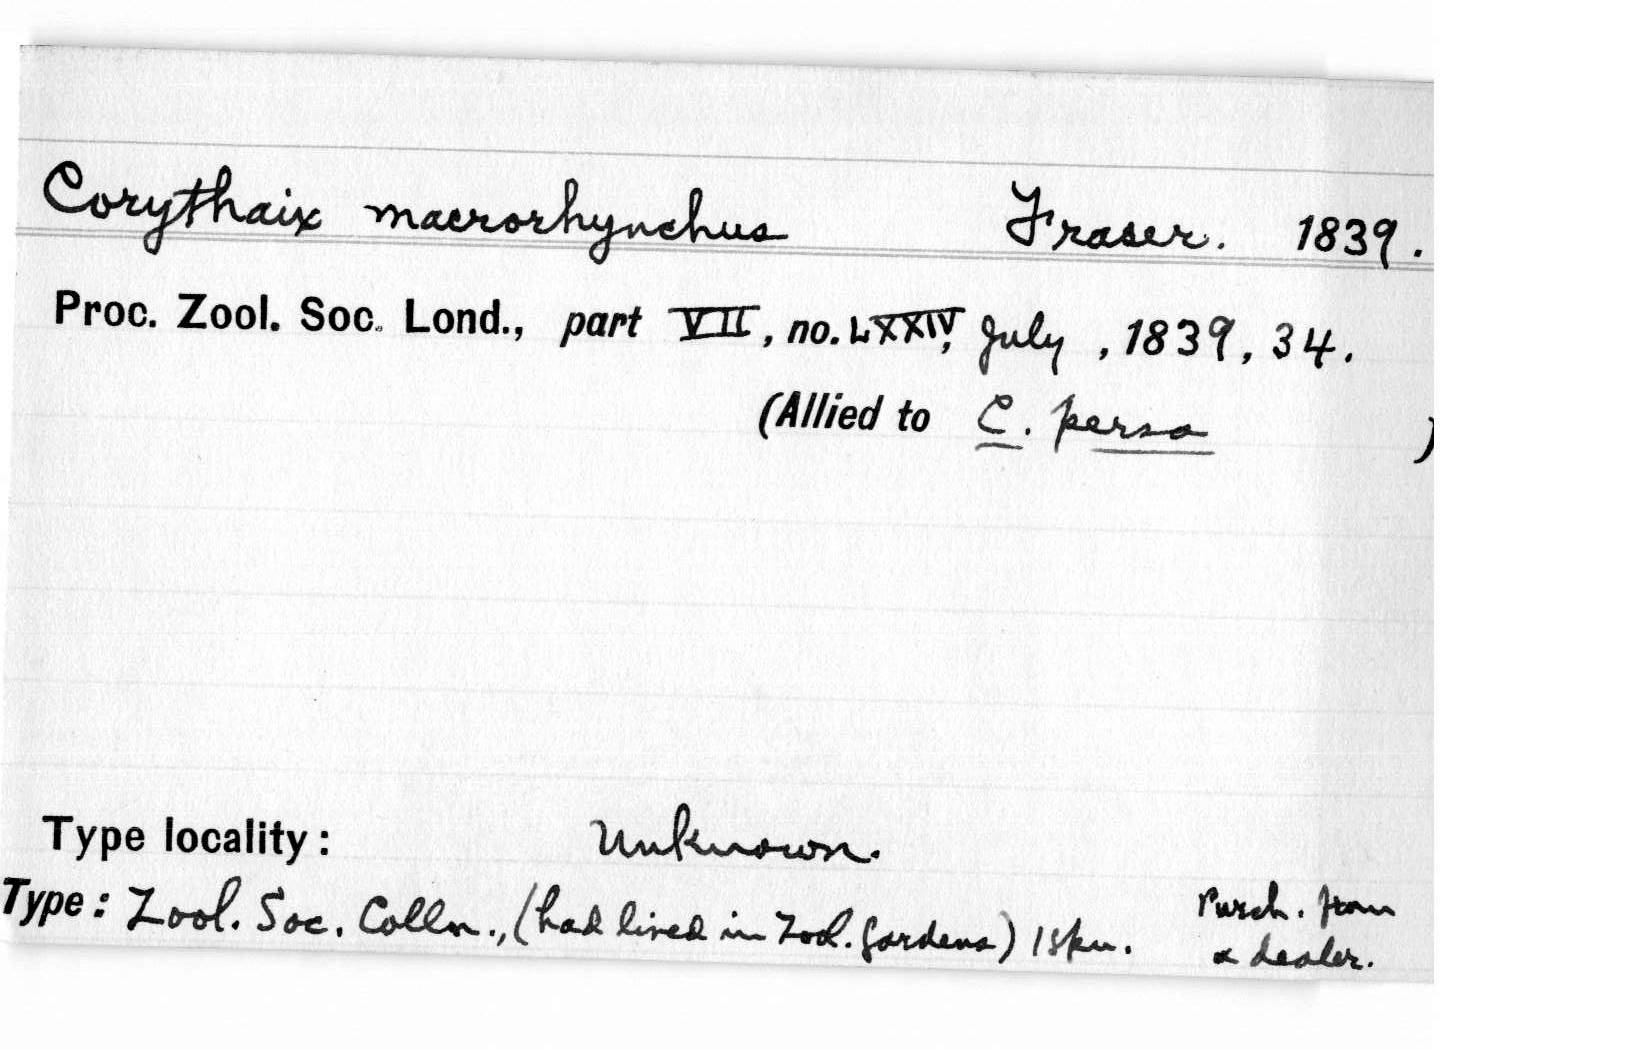 Corythaix macrorhynchus Fraser. 1839.
Proc. Zool. Soc. Lond., part VII, no. LXXIV, July, 1839, 34.
(Allied to C. persa )
Type locality: Unknown.
Type: Zool. Soc. Colln., (had lived in Zool. Gardens) 1 skn. Purch. from
a dealer.